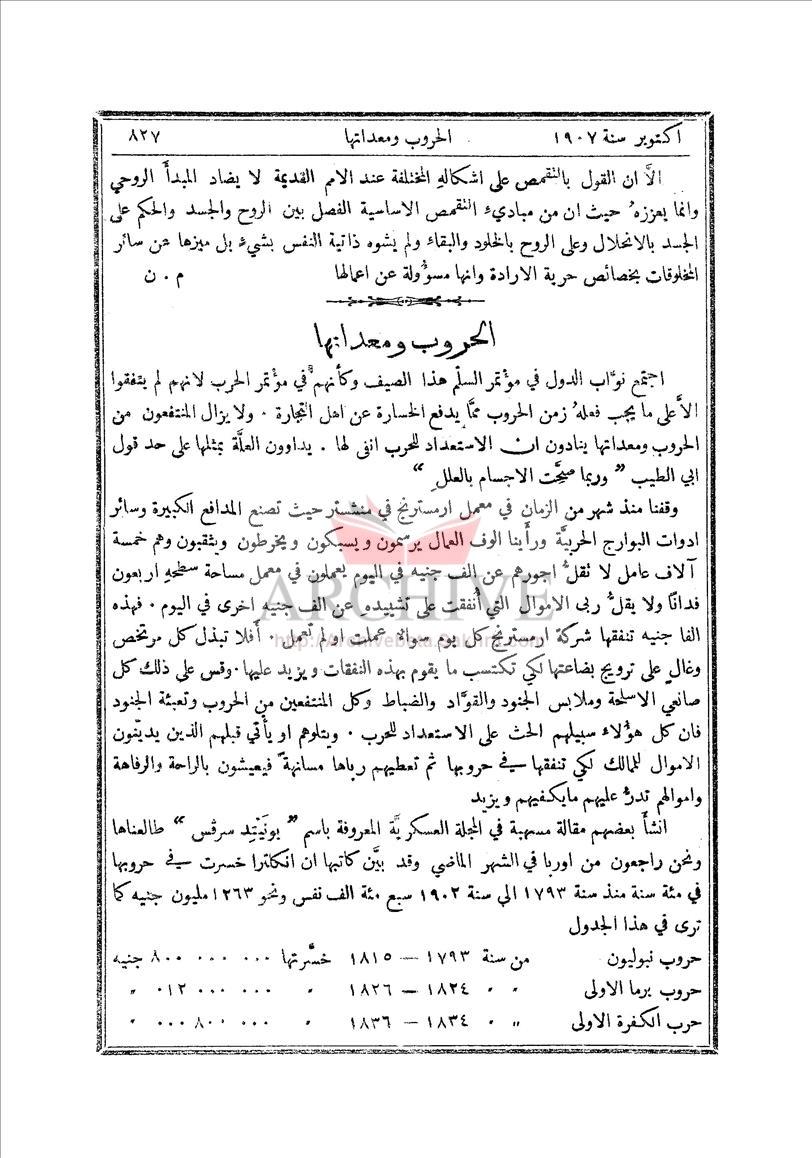 اكتوبر سنة ١٩٠٧ الحروب ومعداتها ٨٢٧
الاَّ ان القول بالتقمص على اشكالهِ المختلفة عند الامم القديمة لا يضاد المبدأَ الروحي
وانما يعززهُ حيث ان من مباديء التقمص الاساسية الفصل بين الروح والجسد والحكم على
الجسد بالانحلال وعلى الروح بالخلود والبقاء ولم يشوه ذاتية النفس بشيءٍ بل ميزها عن سائر
المخلوقات بخصائص حرية الارادة وانها مسؤُولة عن اعمالها م ٠ ن
الحروب ومعداتها
اجتمع نوَّاب الدول في مؤْتمر السلم هذا الصيف وكأَنهم في مؤْتمر الحرب لانهم لم يتفقوا
الاَّ على ما يجب فعلهُ زمن الحروب ممَّا يدفع الخسارة عن اهل التجارة ٠ ولا يزال المنتفعون من
الحروب ومعداتها ينادون ان الاستعداد للحرب انفى لها ٠ يداوون العلَّة بمثلها على حد قول
ابي الطيب ” وربما صحَّت الاجسام بالعلل “
وقفنا منذ شهر من الزمان في معمل ارمسترنج في منشستر حيث تصنع المدافع الكبيرة وسائر
ادوات البوارج الحربيَّة ورأَينا الوف العمال يرسمون ويسبكون ويخرطون ويثقبون وهم خمسة
آلاف عامل لا تقلُّ اجورهم عن الف جنيه في اليوم يعملون في معمل مساحة سطحهِ اربعون
فدانًا ولا يقلُّ ربى الاموال التي أُنفقت على تشييده عن الف جنيه اخرى في اليوم ٠ فهذه
الفا جنيه تنفقها شركة ارمسترنج كل يوم سواءٌ عملت او لم تعمل ٠ أَفلا تبذل كل مرتخص
وغالٍ على ترويج بضاعتها لكي تكتسب ما يقوم بهذه النفقات ويزيد عليها ٠ وقس على ذلك كل
صانعي الاسلحة وملابس الجنود والقوَّاد والضباط وكل المنتفعين من الحروب وتعبئة الجنود
فان كل هؤُلاء سبيلهم الحث على الاستعداد للحرب ٠ ويتلوهم او يأْتي قبلهم الذين يديّنون
الاموال للمالك لكي تنفقها في حروبها ثم تعطيهم رباها مسانهةً فيعيشون بالراحة والرفاهة
واموالهم تدرُّ عليهم ما يكفيهم ويزيد
انشأَ بعضهم مقالة مسهبة في المجلة العسكريَّة المعروفة باسم ” يونَيْتِد سرڤس “ طالعناها
ونحن راجعون من اوربا في الشهر الماضي وقد بيَّن كاتبها ان انكلترا خسرت في حروبها
في مئة سنة منذ سنة ١٧٩٣ الى سنة ١٩٠٢ سبع مئة الف نفس ونحو ١٢٦٣ مليون جنيه كما
ترى في هذا الجدول
حروب نبوليون من سنة ١٧٩٣ — ١٨١٥ خسَّرتها ٨٠٠ ٠٠٠ ٠٠٠ جنيه
حروب برما الاولى ” ” ١٨٢٤ — ١٨٢٦ ” ٠١٢ ٠٠٠ ٠٠٠ ”
حرب الكفرة الاولى ” ” ١٨٣٤ — ١٨٣٦ ” ٠٠٠ ٨٠٠ ٠٠٠ ”
ARCHIVE